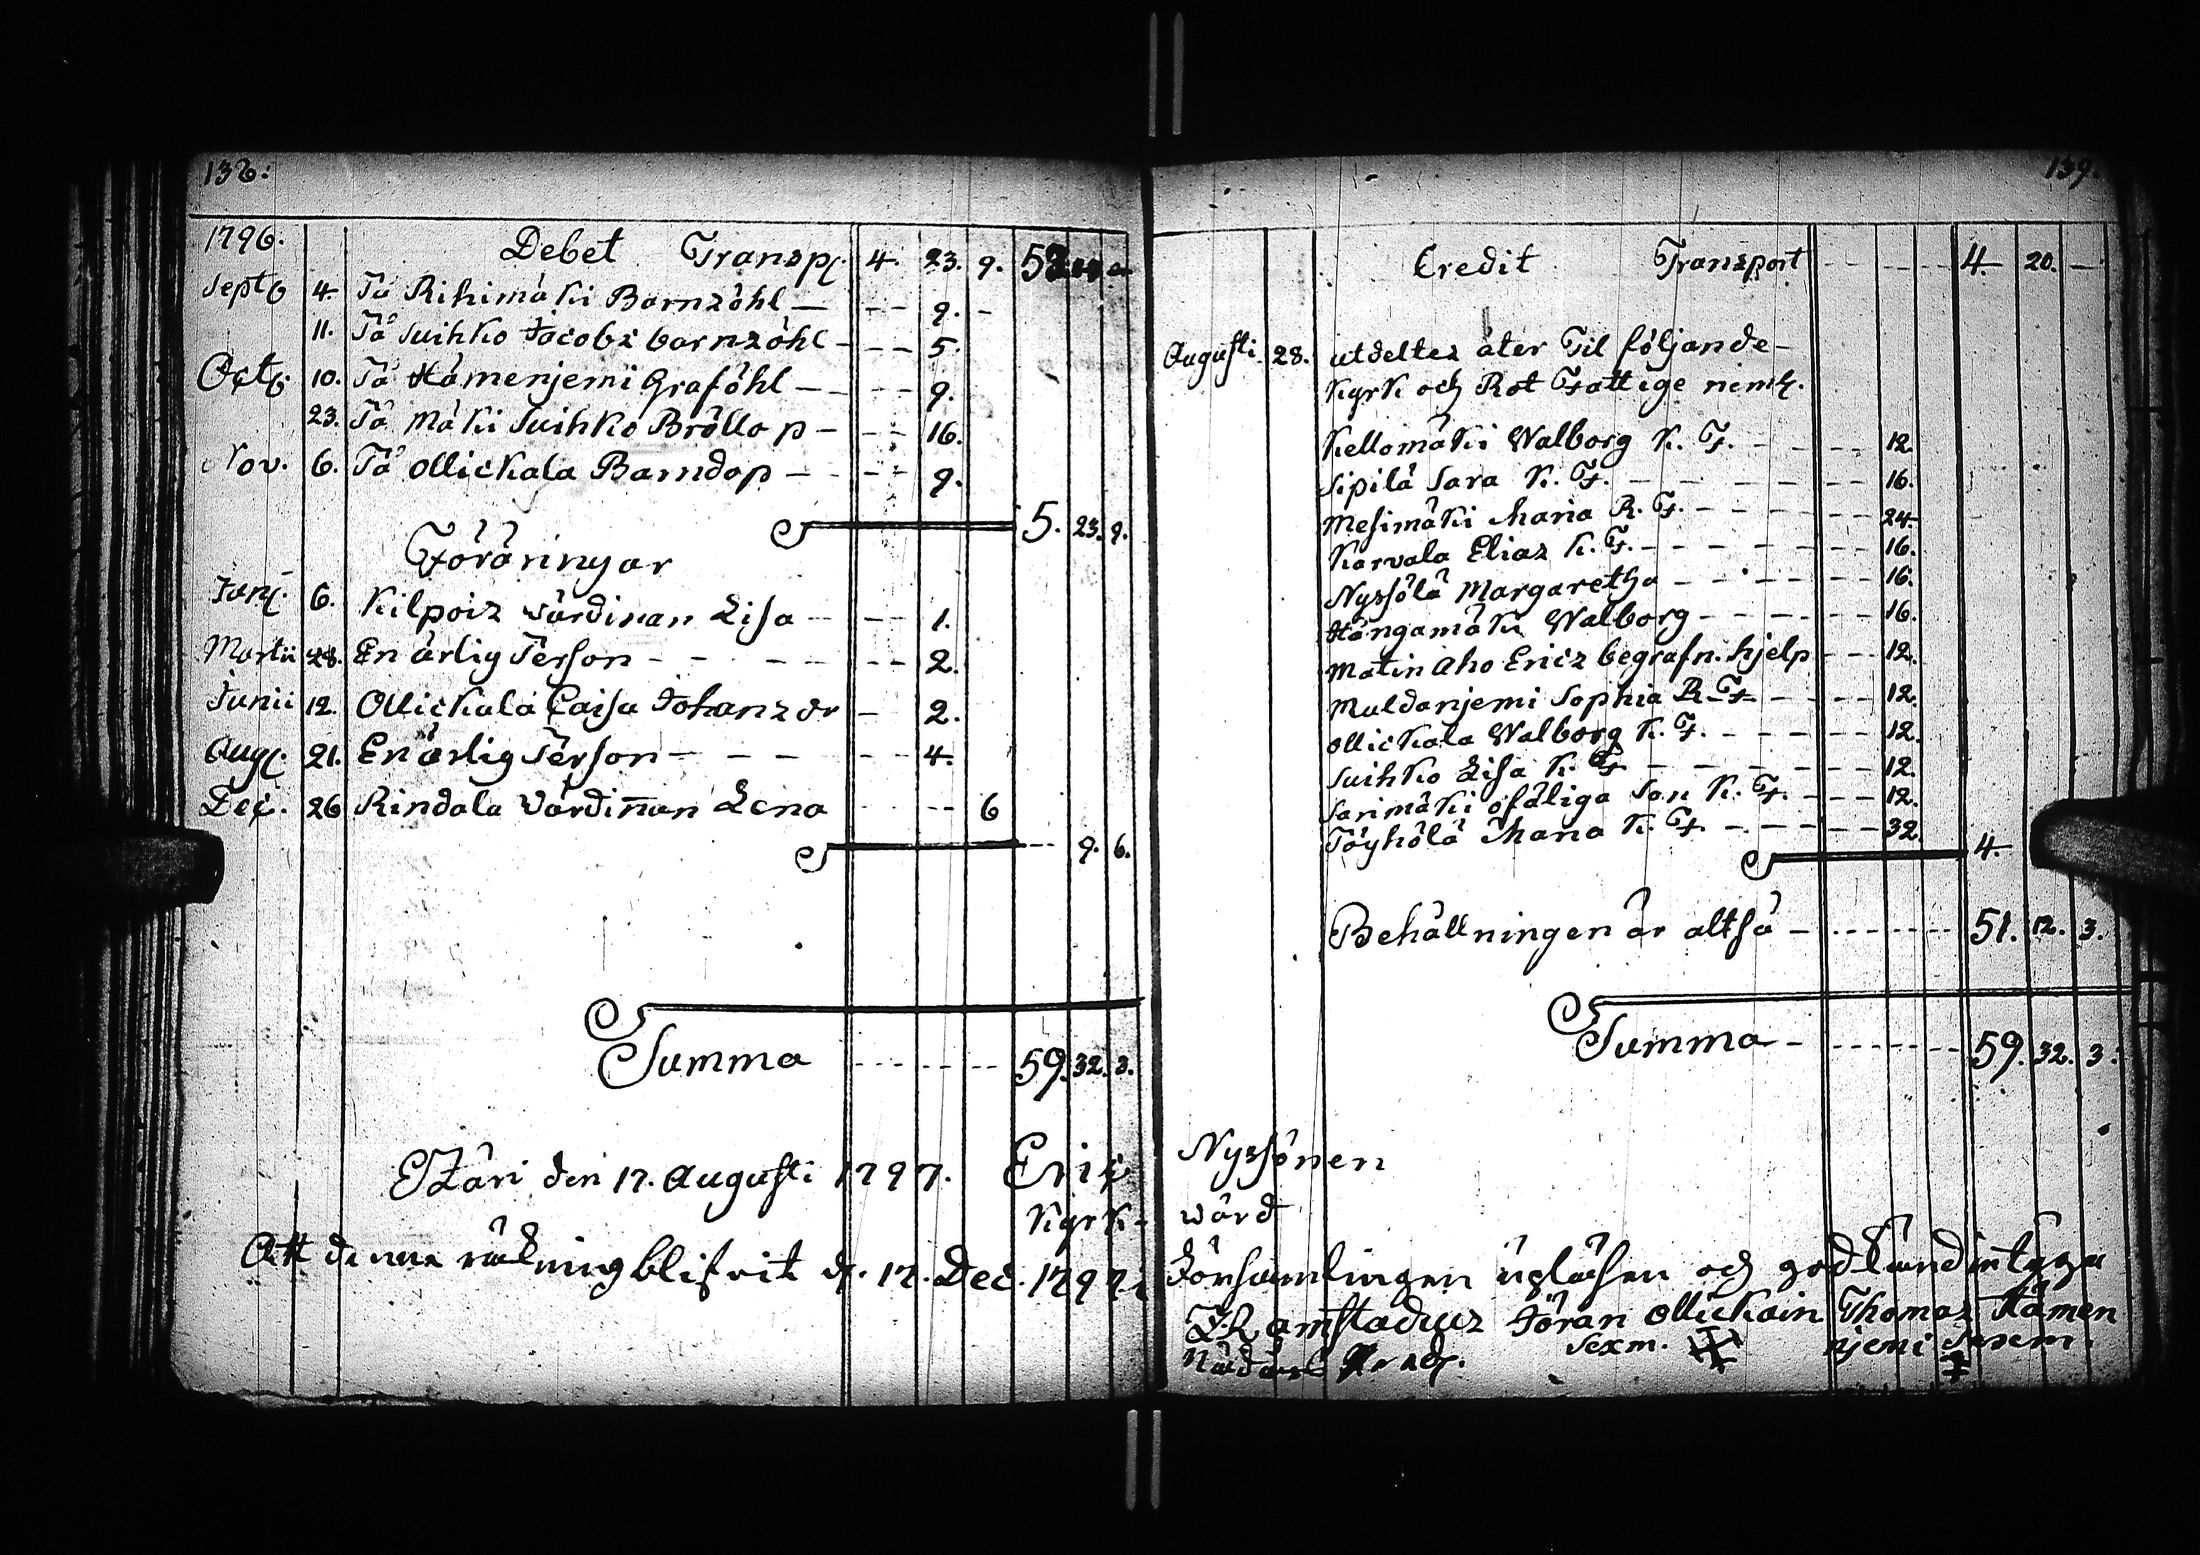 138.
1796.
Debet Transp. 4. 23. 9. 53
Septb 4. På Rihimäki Barnzöhl — 9. -
11. På Suihko Jacobz barnzöhl - 5.
Octb. 10. På Hämenjemi Graföhl — 9.
23. På Mäki Suihko Bröllop - 16.
Nov. 6. På Ollickala Barndop - 9.
5. 23. 9.
Föräringar
Janr. 6. Kilpoiz wärdinan Lisa - 1.
Martii 28. En ärlig Person - 2.
Junii 12. Ollickala Caisa Johanz dr - 2.
Aug. 21. En ärlig Person - 4.
Dec. 26 Rindala Värdinnan Lena 6
9. 6.
Summa 59. 32. 3.
Etzäri den 17. Augusti 1797. Eric
Kyrk-
Att denna räkning blifvit d. 17. Dec. 1797 i
139.
Credit Transport 4. 20. —
Augusti. 28. utdeltes åter Til följande
Kyrk och Rot Fattige neml.
Kellomäki Walborg K. F. - 12.
Sipilä Sara K. F. - 16.
Mesimäki Maria R. F. - 24
Karvala Eliaz K. F. - 16.
Nyssölä Margaretha - 16.
Hångamäki Walborg - 16.
Matin Aho Ericz begrafn. hjelp - 12.
Muldanjemi Sophia R. F. - 12.
Ollickala Walborg K. F. - 12.
Suihko Lisa K. F. - 12.
Sarimäki ofäliga Son K. F. - 12.
Töyhölä Maria K. F. - 32.
4.
Behållningen är altså - 51. 12. 3.
Summa - 59. 32. 3.
Nyssönen
wärd
Församlingen upläsen och godkänd intyga
Z. R. amstadiuz Jöran Ollickain Thomas Hämen
Sexm. njemi Sexm.